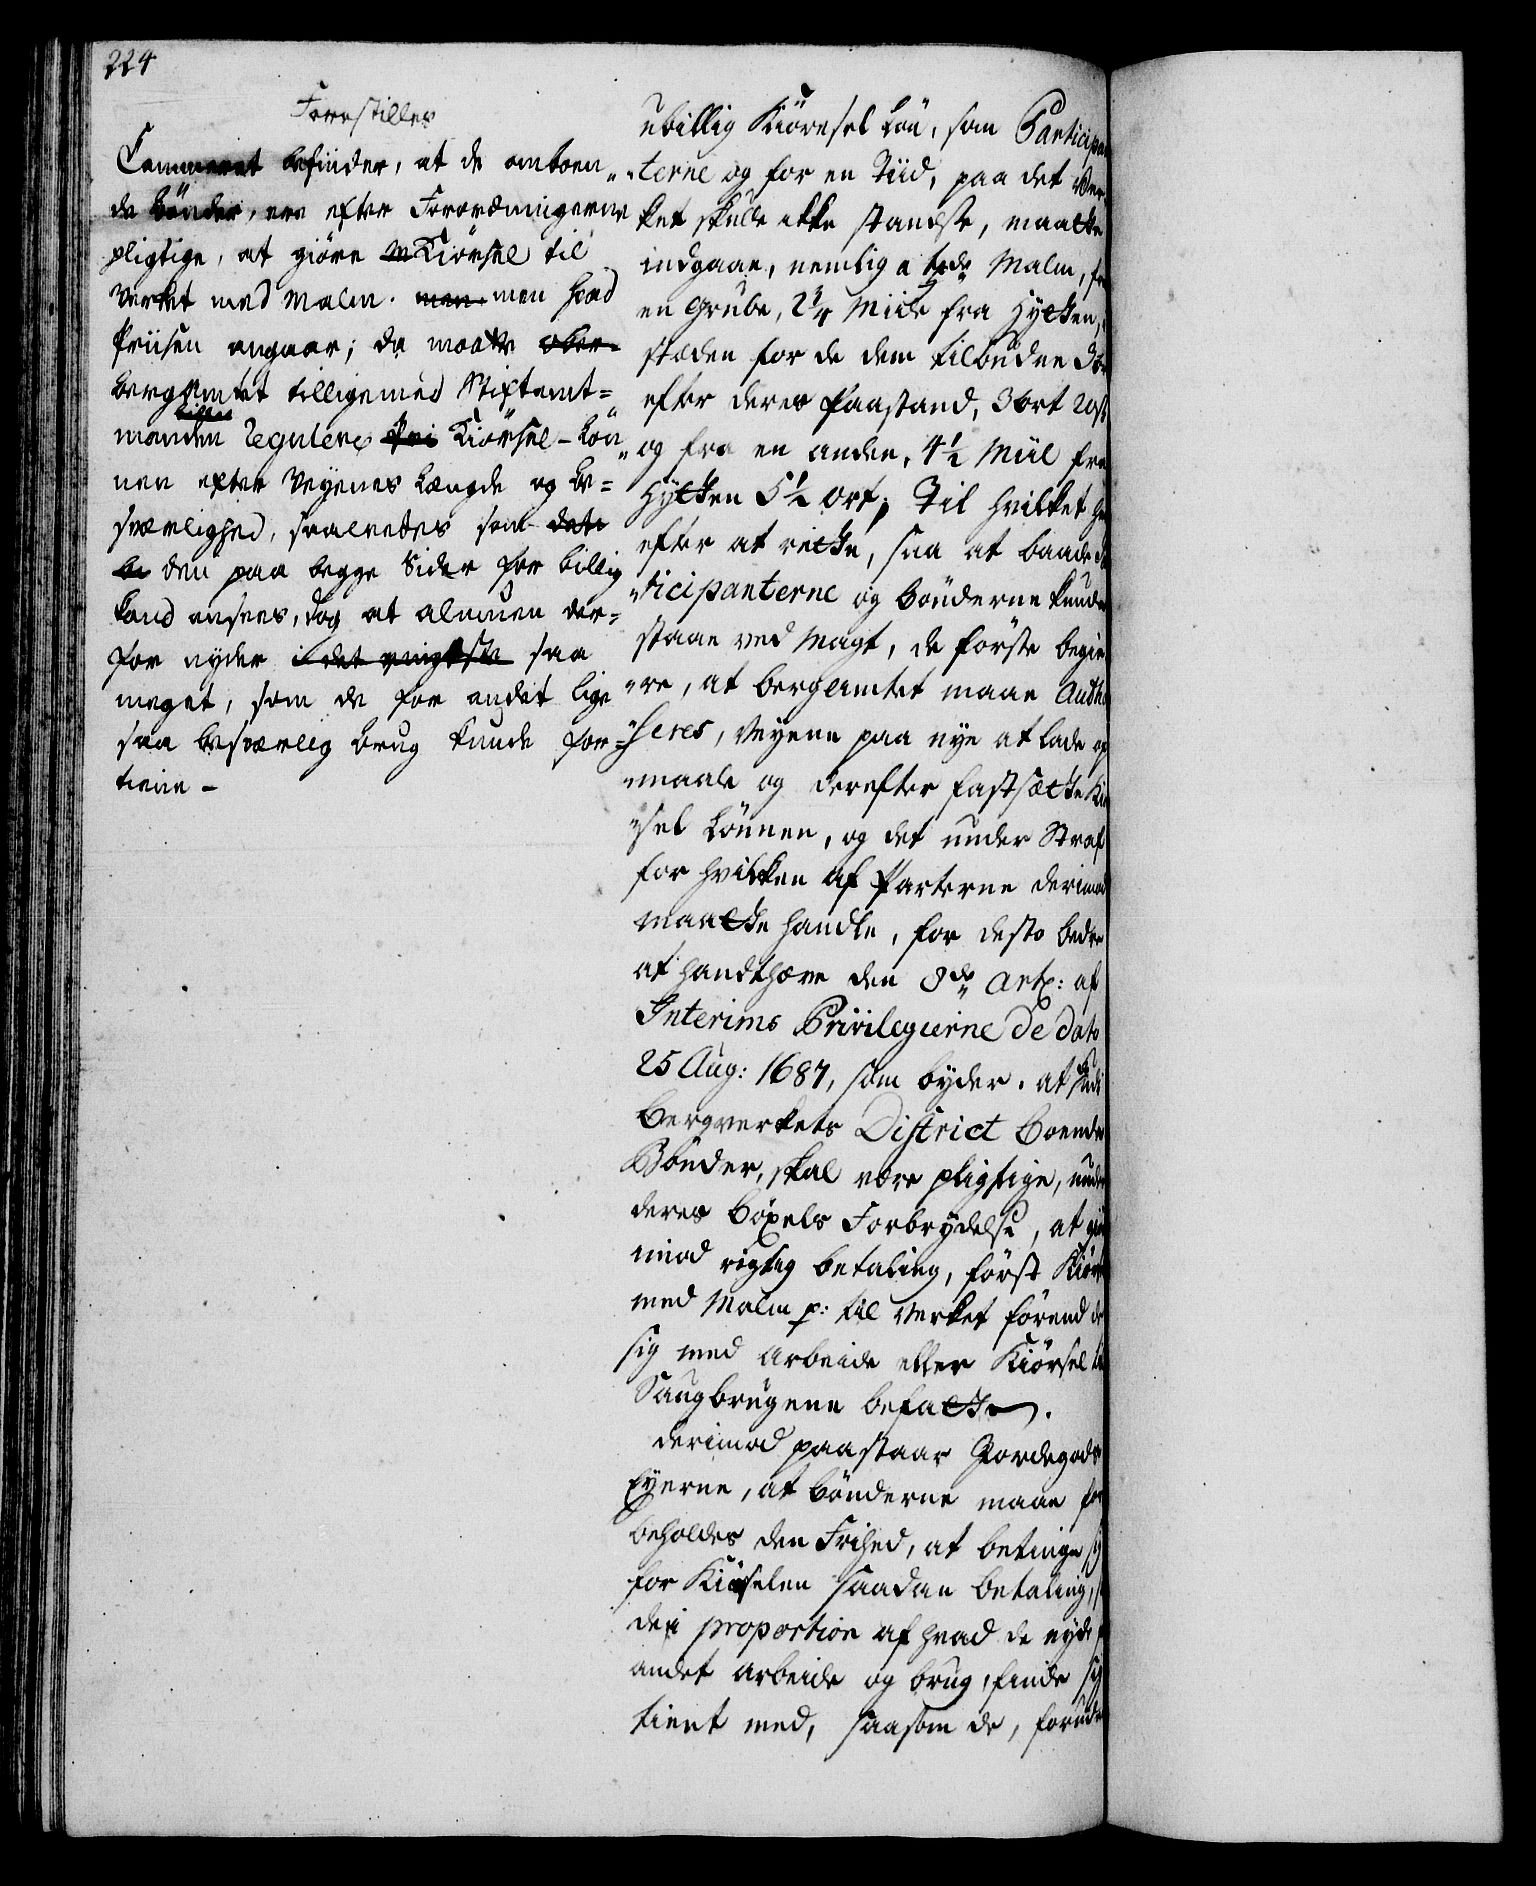 224
Forestilles
Cammeret befinder, at de omboen„
de bönder, ere efter Forordningerne
pligtige, at giöre Kiörsel til
Verket med Malm. men men hvad
Priisen angaar; da maatte Ober-
bergamtet tilligemed Stiftamt-
manden Regulere Kiörsel-Lön„
nen efter Veyenes Længde og be-
sværlighed, saaledes som det
be den paa begge Sider for billig
kand ansees, dog at almuen der-
for nyder i det ringeste saa
meget, som de for andet lige
saa besværlig brug kunde for-
tiene -
ubillig Kiöresel Lön, som Participan
„terne og for en Tiid, paa det Ver
ket skulle ikke standse, maatte
indgaae, nemlig a tde Malm, fra
en Grube, 2 3/4 Miile fra Hytten,
stæden for de dem tilbudne 3
efter deres Paastand, 3 ort 20 s
og fra en anden, 4 1/2 Miil fra
Hytten 5 1/2 ort; Til hvilket
efter at rette, saa at baade
„ticipanterne og bönderne kunde
staae ved Magt, de förste begie
„re, at bergamtet maae Autho
„seres, Veyene paa nye at lade op
„maale og derefter fastsætte Kiö
„sel Lönnen, og det under Straf
for hvilken af Parterne derimod
maatte handle, for desto bedre
at handthæve den 8de Art: af
Interims Privilegierne de dato
25 Aug: 1687, som byder, at de udi
bergverkets District boende
Bönder, skal være pligtige, under
deres böxels Forbrydelse, at giö
imod rigtig betaling, först Kiör
med Malm p: til Verket förend de
sig med arbeide eller Kiörsel til
Saugbrugene befatte.
derimod paastaar Jordegods
Eyerne, at bönderne maae for
beholdes den Frihed, at betinge sig
for Kiörselen saadan betaling,
de i proportion af hvad de nyde
andet arbeide og brug, finde sig
tient med, saasom de, foruden